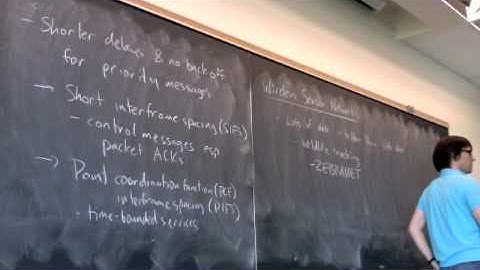 - Shorter delays & no backoff
for priority messages
→ Short interframe spacing (SIFS)
- control messages esp.
packet ACKs
→ Point coordination function (PCF)
interframe spacing (PIFS)
- time-bounded services
Wireless Sensor Networks
Lots of data
- wildlife tracking
- ZEBRANET